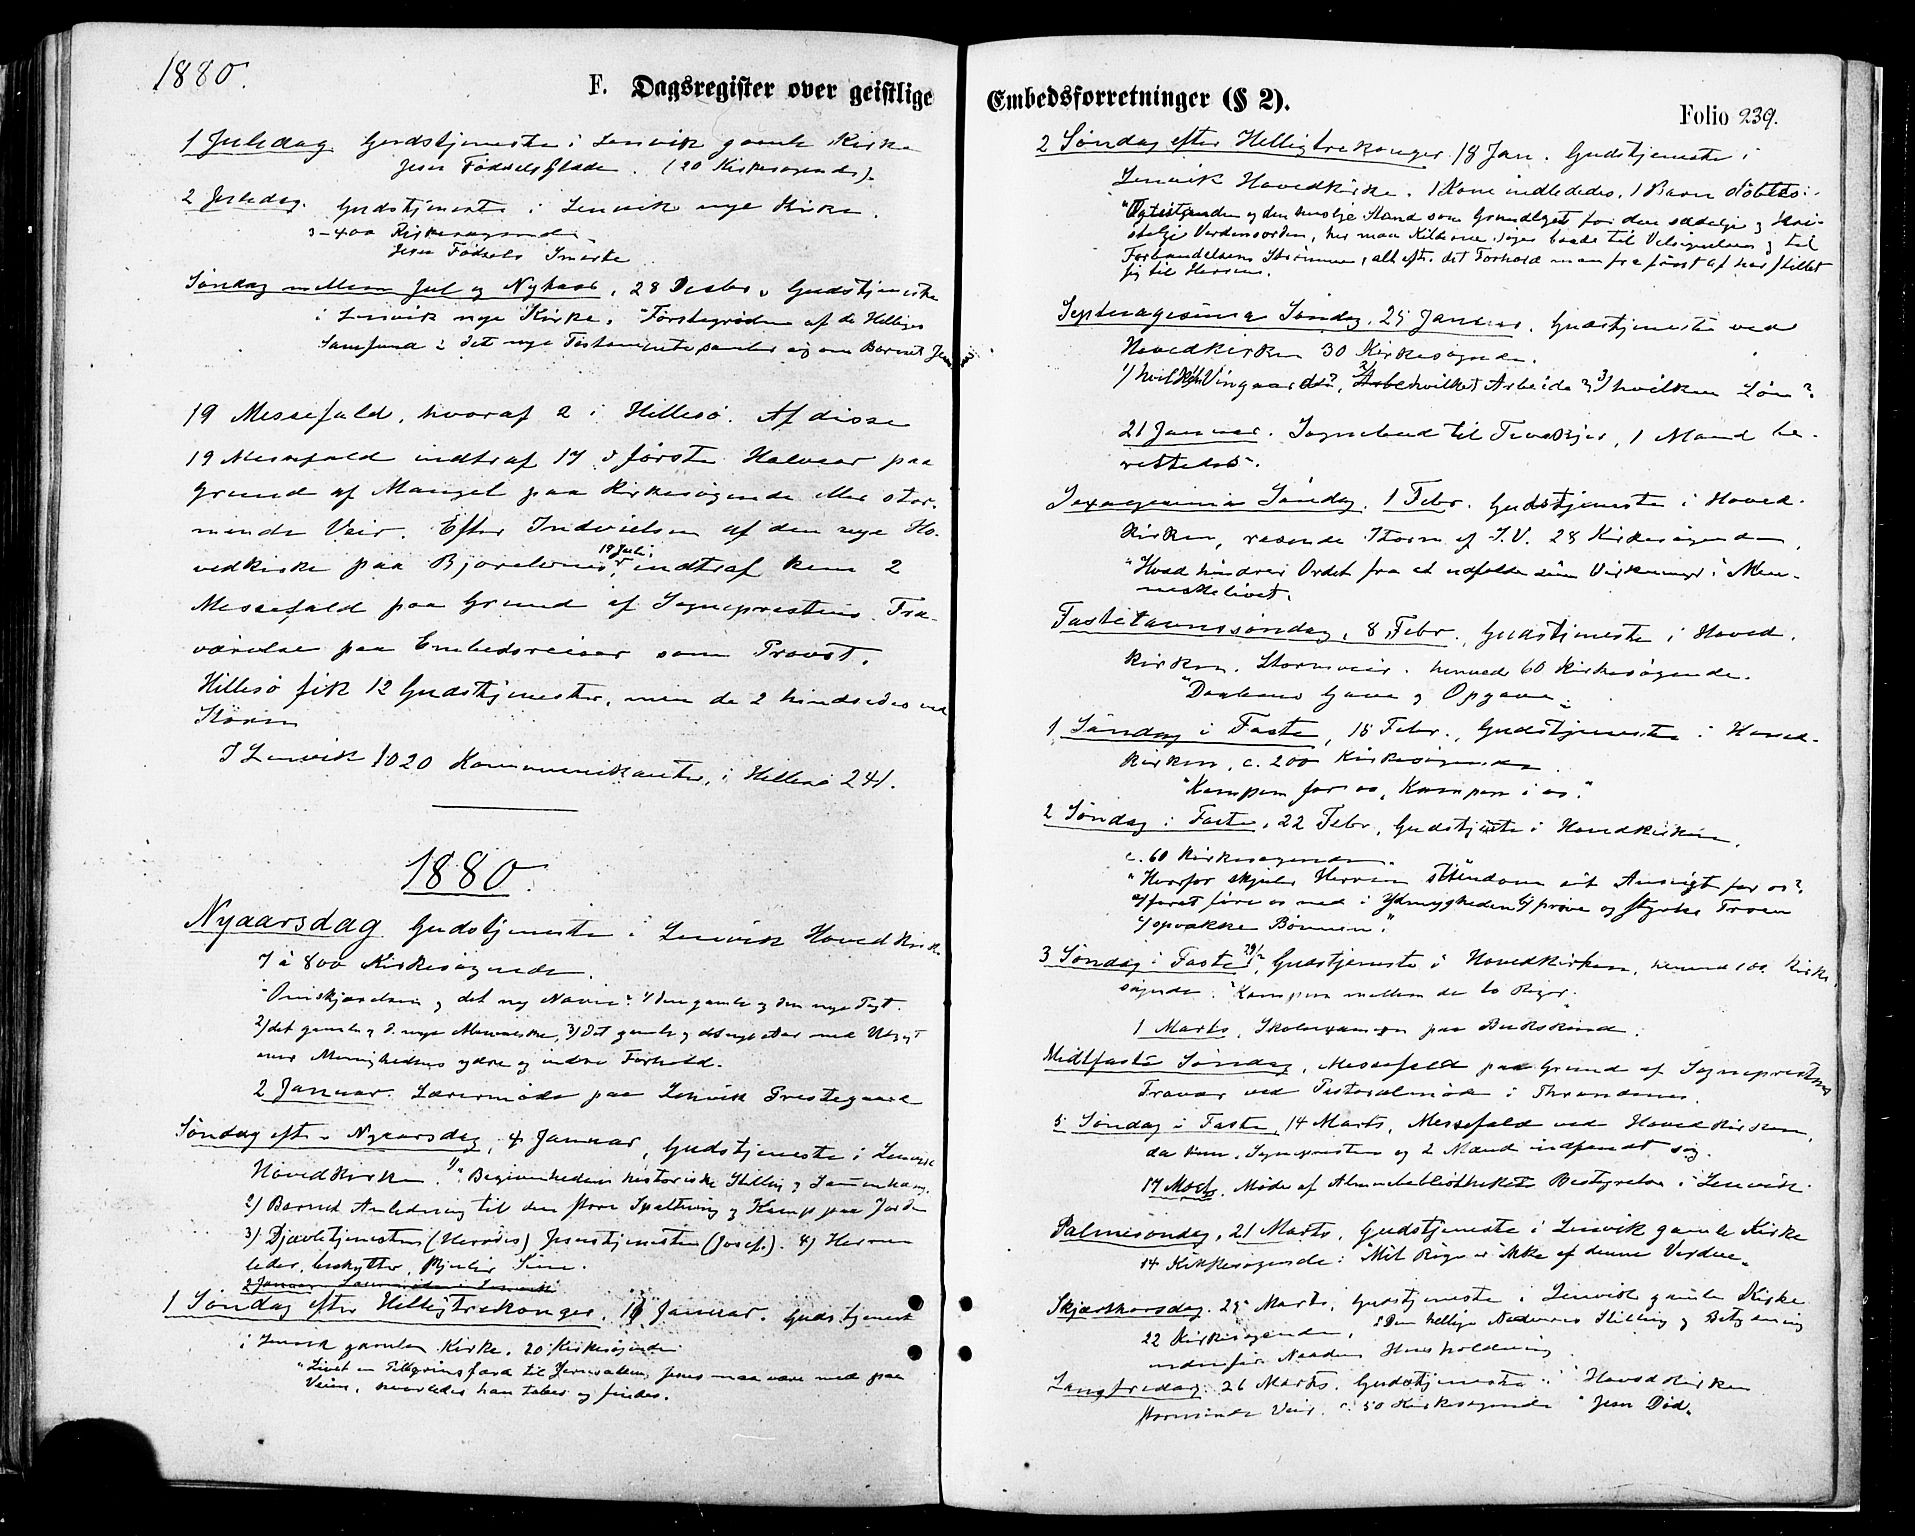 1880.
F. Dagsregister over geistlige
1 Juledag Gudstjeneste i Lenvik gamle Kirke
Jesu Fødsels Glæde. (20 Kirkesøgende).
2 Juledag. Gudstjeneste i Lenvik nye Kirke.
3-400 Kirkesøgende.
Jesu Fødsels
Søndag mellem Jul og Nytaar, 28 Decbr, Gudstjeneste
i Lenvik nye Kirke. "Førstegrøden af de Helliges
Samfund i det nye Testamente samler sig om Barnet
19 Messefald, hvoraf 2 i Hillesø. Af disse
19 Messefald indtraf 17 i første Halvaar paa
Grund af Mangel paa Kirkesøgende eller stor-
mende Veir. Efter Indvielsen af den nye Ho-
vedkirke paa Bjorelvnes, 19 Juli, indtraf kun 2
Messefald paa Grund af Sogneprestens Fra-
værelse paa Embedsreiser som Provst.
Hillesø fik 12 Gudstjenester, men de 2 hindredes ved
Storm
I Lenvik 1020 Kommunikanter, i Hillesø 241.
1880.
Nyaarsdag Gudstjeneste i Lenvik Hovedkirke
7 à 800 Kirkesøgende.
"Omskjærelsen og det ny Navn: 1) den gamle og den nye Pagt.
2) det gamle og d. nye Menneske, 3) det gamle og det nye Aar med Udsigt
over Menighedens ydre og indre Forhold.
2 Januar. Lærermøde paa Lenvik Prestegaard
Søndag efter Nyaarsdag, 4 Januar, Gudstjeneste i Lenvik
Hovedkirke. 1) "Begivenhedens historiske Stilling og Sammenhæng.
2) Barnet Anledning til den store Spaltning og Kamp paa Jorden
3) Djævletjenesten (Herodes) Jesustjenesten (Josef). 4) Herren
leder, beskytter, skjuler Sine.
2 Januar Lærermøde i Lenvik
1 Søndag efter Helligtrekonger, 11 Januar. Gudstjeneste
i Lenvik gamle Kirke. 20 Kirkesøgende
"Livet en Pillegrimsfærd til Jerusalem, Jesus maa være med paa
Veien, hvorledes han tabes og findes.
Embedsforretninger (§ 2).
Folio 239.
2 Søndag efter Helligtrekonger, 18 Jan. Gudstjeneste i
Lenvik Hovedkirke. 1 Kone indlededes. 1 Barn døbtes.
"Ægtestanden og den huslige Stand som Grundlaget for den sædelige og kri-
stelige Verdensorden, her maa Kilderne søges baade til Velsignelsen og til
Forbandelsens Strømme, alt efter det Forhold man fra først af har stillet
sig til Herren.
Septuagesima Søndag, 25 Januar. Gudstjeneste ved
Hovedkirken 30 Kirkesøgende.
1) hvilken Vingaard? 2) hvilket Arbeide? 3) hvilken Løn?
21 Januar. Sognebud til, 1 Mand be-
rettedes.
Sexagesima Søndag, 1 Febr. Gudstjeneste i Hoved-
kirken, rasende Storm af S.V. 28 Kirkesøgende,
"Hvad hindrer Ordet fra at udfolde sine Virkninger i Men-
neskelivet.
Fastelavnssøndag, 8 Febr., Gudstjeneste i Hoved-
kirken. Stormveir. henved 60 Kirkesøgende.
"Daabens Gave og Opgave.
1 Søndag i Faste, 15 Febr., Gudstjeneste i Hoved-
kirken, c. 200 Kirkesøgende.
"Kampen for os, Kampen i os."
2 Søndag i Faste, 22 Febr, Gudstjeneste i Hovedkirken.
c. 60 Kirkesøgende.
"Hvorfor skjuler Herren stundom sit Ansigt for os?
a) for at føre os ned i Ydmygheden b) prøve og styrke Troen
c) opvække Bønnen".
3 Søndag i Faste 29/2, Gudstjeneste i Hovedkirken, henved 100 Kirke-
søgende. "Kampen mellem de to Riger.
1 Marts, Skoleexamen paa Bukskind.
Midtfaste Søndag, Messefald paa Grund af Sogneprestens
Fravær ved Pastoralmøde i Throndenes.
5 Søndag i Faste, 14 Marts, Messefald ved Hovedkirken,
da kun Sognepresten og 2 Mænd indfandt sig.
17 Marts. Møde af Almuebibliothekets Bestyrelse i Lenvik.
Palmesøndag, 21 Marts, Gudstjeneste i Lenvik gamle Kirke
14 Kirkesøgende: "Mit Rige er ikke af denne Verden".
Skjærthorsdag. 25 Marts, Gudstjeneste i Lenvik gamle Kirke
22 Kirkesøgende. "Den hellige Nadveres Stilling og Betydning
indenfor Naadens Husholdning.
Langfredag. 26 Marts. Gudstjeneste i Hovedkirken
stormende Veir. c. 50 Kirkesøgende "Jesu Død.